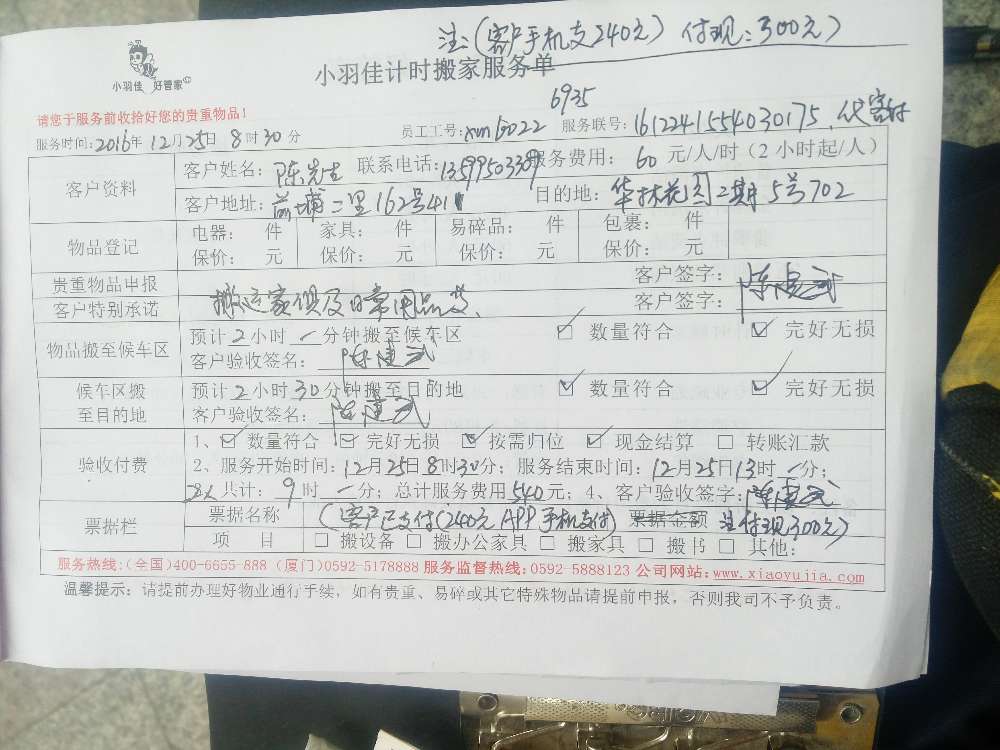 注:(客户手机支240元) 付现:300元)
小羽佳 好管家
小羽佳计时搬家服务单
6935
请您于服务前收拾好您的贵重物品!
服务时间:2016年12月25日8时30分 员工工号:xm16022 服务联号:1612241554030175.
客户资料
客户姓名:陈先生 联系电话:13599503309 服务费用: 60 元/人/时(2小时起/人)
客户地址:前埔二里162号41 目的地:华林花园二期5号702
物品登记
电器: 件 家具: 件 易碎品: 件 包裹: 件
保价: 元 保价: 元 保价: 元 保价: 元
贵重物品申报 客户签字:
客户特别承诺 搬运家俱及日常用品等、 客户签字:
物品搬至候车区
预计2小时一分钟搬至候车区 □ 数量符合 ☑ 完好无损
客户验收签名:
候车区搬至目的地
预计2小时30分钟搬至目的地 ☑ 数量符合 ☑ 完好无损
客户验收签名:
验收付费
1、☑ 数量符合 ☑ 完好无损 ☑ 按需归位 ☑ 现金结算 □ 转账汇款
2、服务开始时间:12月25日8时30分;服务结束时间:12月25日13时一分;
2人共计:9时一分;总计服务费用540元;4、客户验收签字:
票据栏
票据名称 (客户已支付(240元APP手机支付) 票据金额 注付现300元)
项 目 □ 搬设备 □ 搬办公家具 □ 搬家具 □ 搬书 □ 其他:
服务热线:(全国)400-6655-888 (厦门)0592-5178888 服务监督热线:0592-5888123 公司网站:www.xiaoyujia.com
温馨提示:请提前办理好物业通行手续,如有贵重、易碎或其它特殊物品请提前申报,否则我司不予负责。